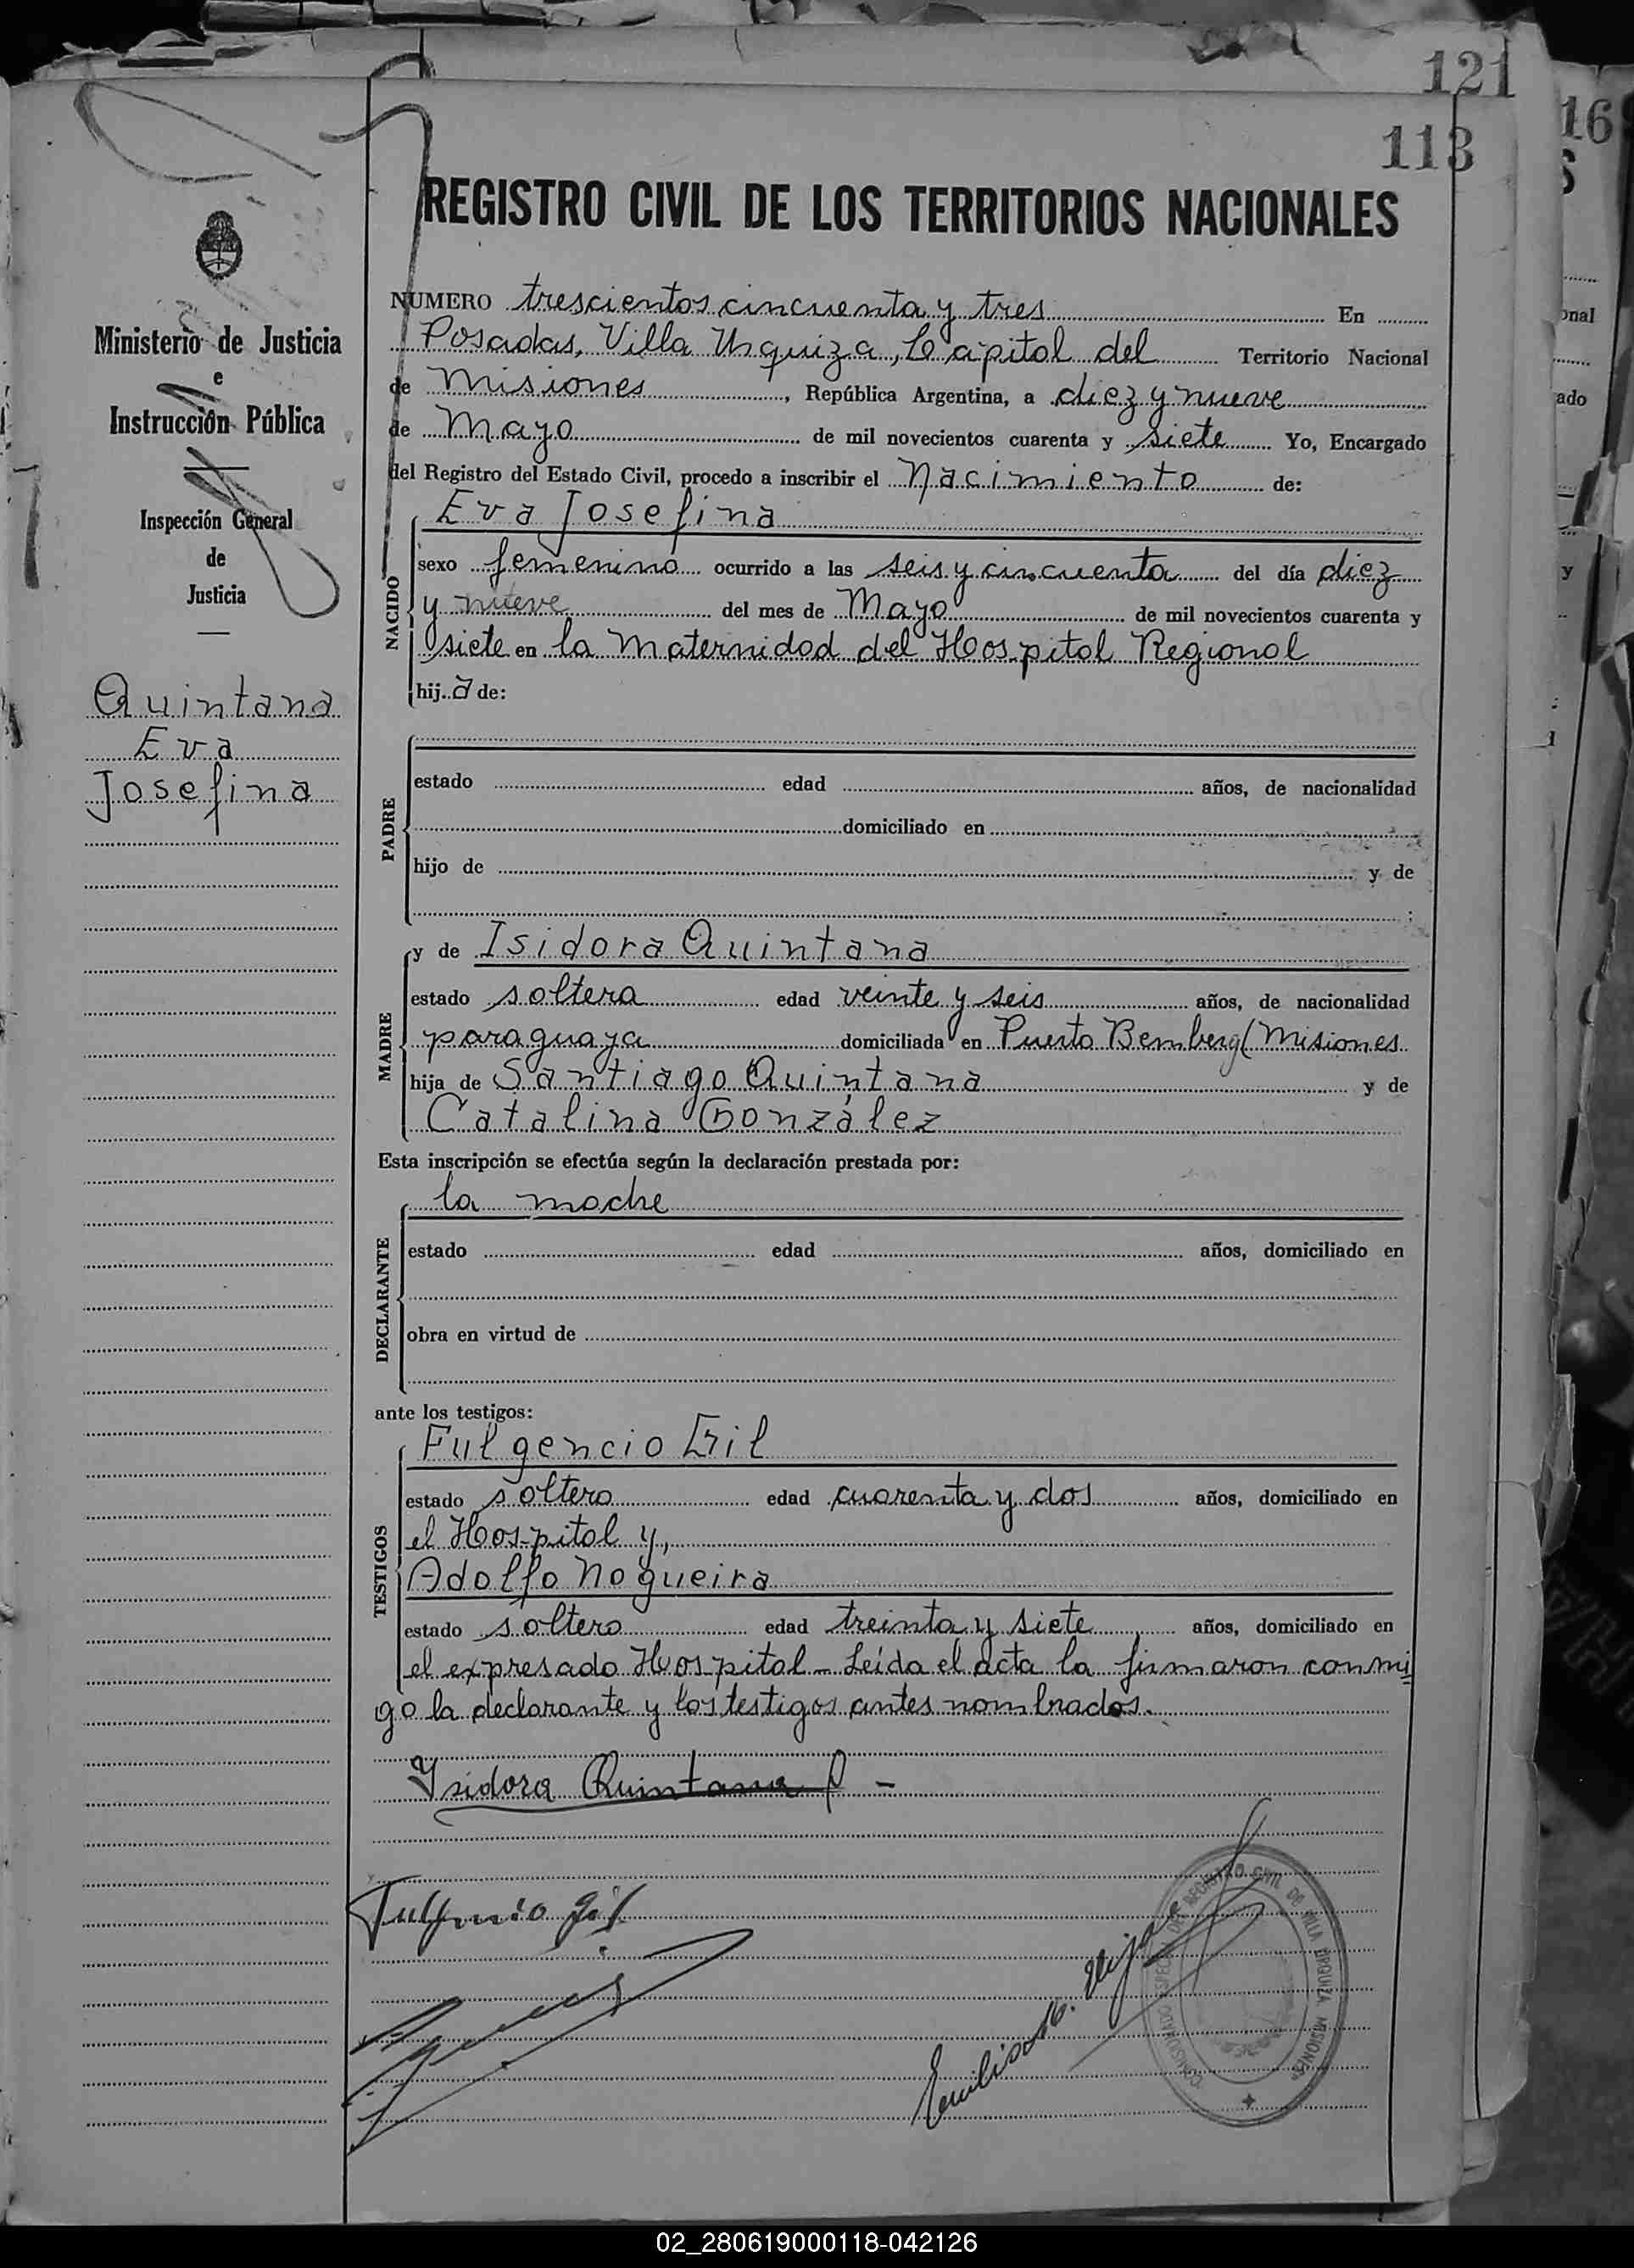 121
113
16
REGISTRO CIVIL DE LOS TERRITORIOS NACIONALES
Ministerio de Justicia
e
Instrucción Pública
Inspección General
de
Justicia
Quintana
Eva
Josefina
NUMERO trescientos cincuenta y tres En
Posadas, Villa Urquiza, Capital del Territorio Nacional
de Misiones, República Argentina, a diez y nueve
de Mayo de mil novecientos cuarenta y siete Yo, Encargado
del Registro del Estado Civil, procedo a inscribir el Nacimiento de:
Eva Josefina
NACIDO
sexo femenino ocurrido a las seis y cincuenta del día diez
y nueve del mes de Mayo de mil novecientos cuarenta y
siete en la Maternidad del Hospital Regional
hij.a de:
PADRE
estado edad años, de nacionalidad
domiciliado en
hijo de y de
;
MADRE
y de Isidora Quintana
estado soltera edad veinte y seis años, de nacionalidad
paraguaya domiciliada en Puerto Bemberg (Misiones
hija de Santiago Quintana y de
Catalina González
Esta inscripción se efectúa según la declaración prestada por:
la madre
DECLARANTE
estado edad años, domiciliado en
obra en virtud de
ante los testigos:
TESTIGOS
Fulgencio Gil
estado soltero edad cuarenta y dos años, domiciliado en
el Hospital y,
Adolfo Nogueira
estado soltero edad treinta y siete años, domiciliado en
el expresado Hospital - Leída el acta la firmaron conmi
go la declarante y los testigos antes nombrados.
Ysidora Quintana
Fulgencio Gil
REGISTRO CIVIL DE VILLA URQUIZA MISIONES
02_280619000118-042126